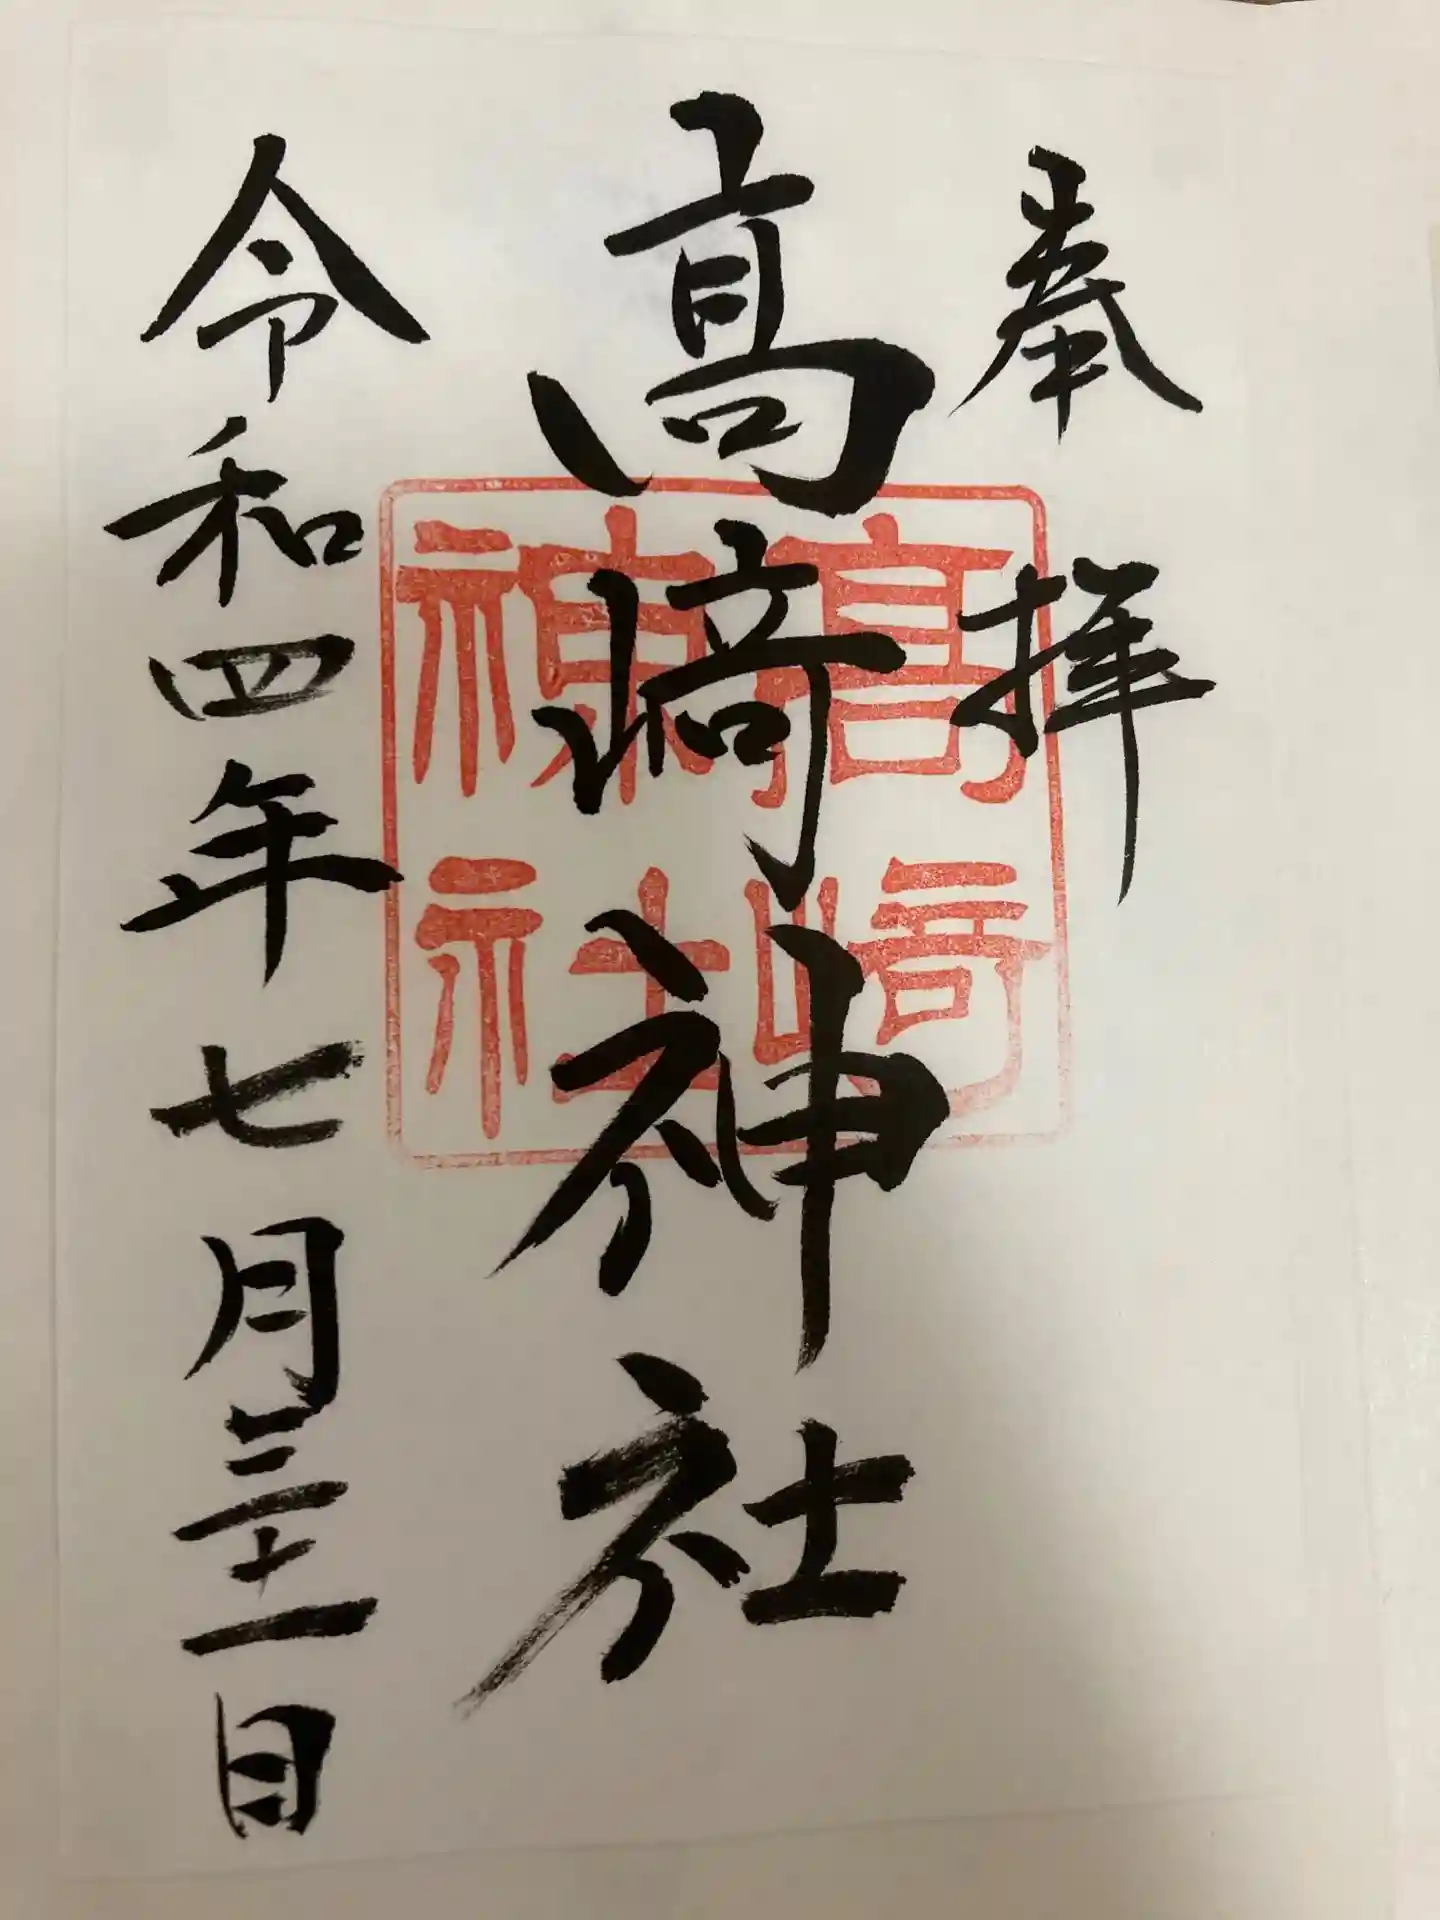 奉拝
髙﨑神社
令和四年七月三十一日
髙﨑
神社